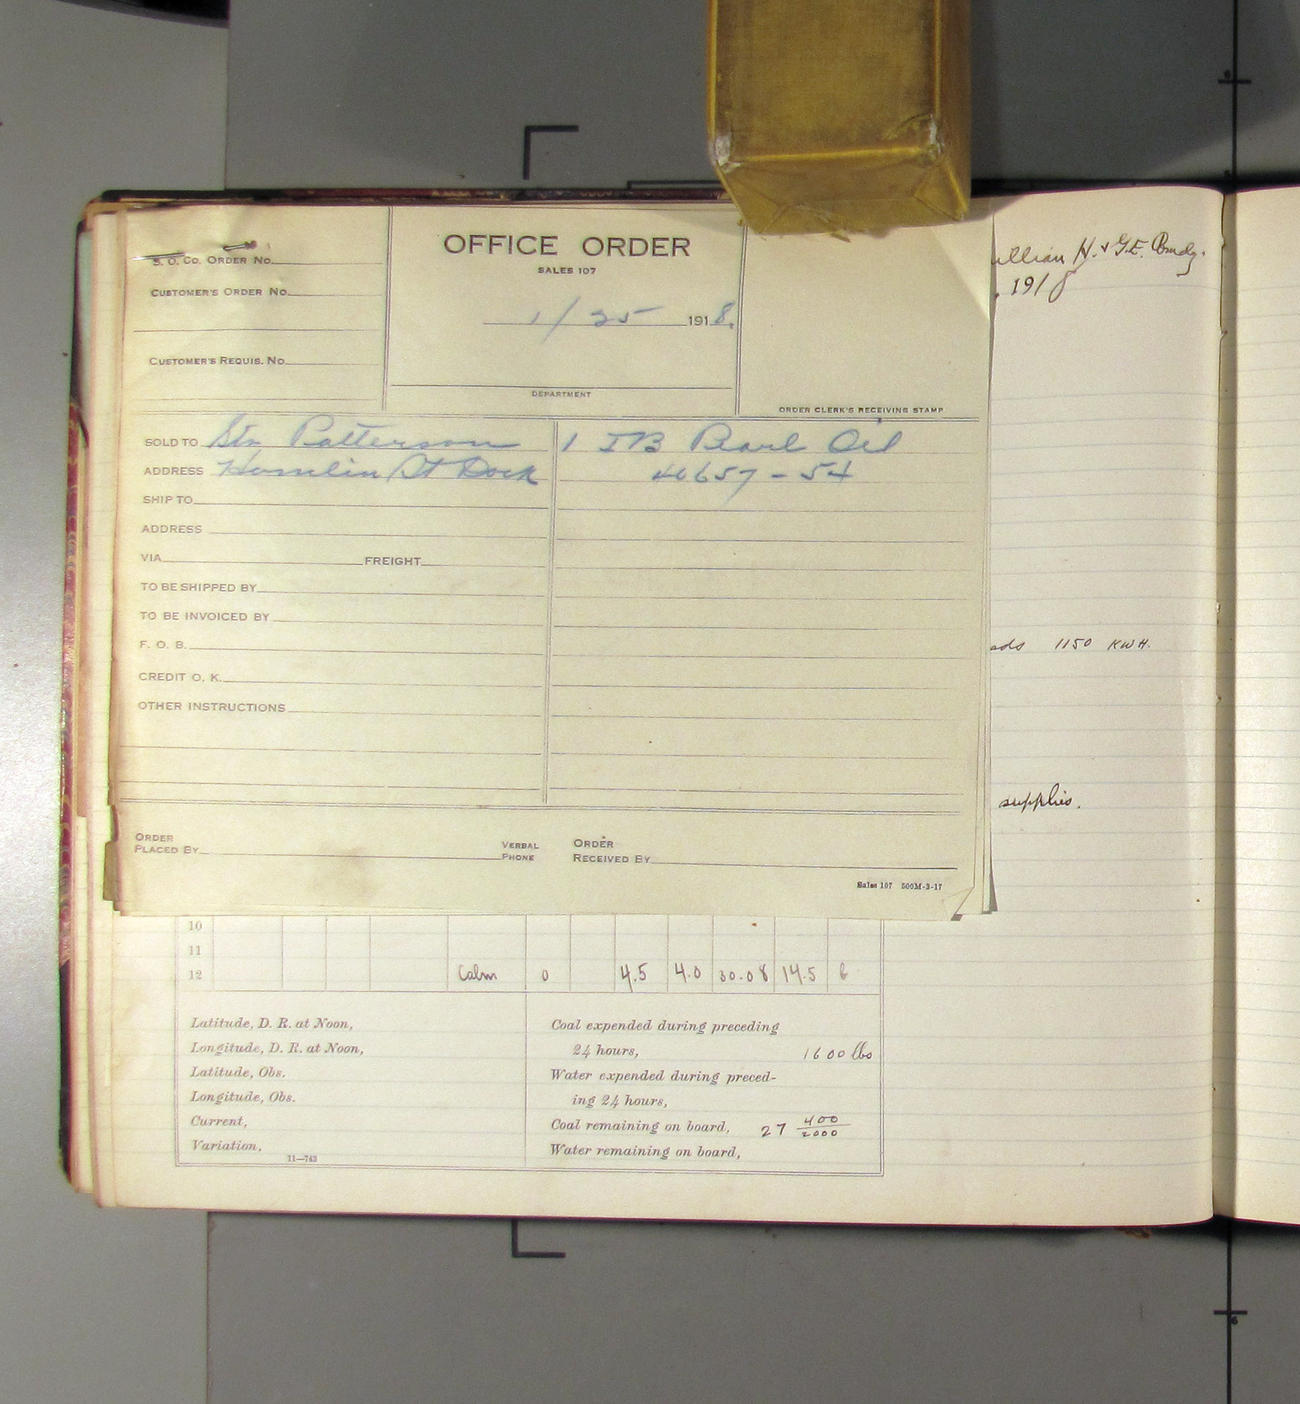 S. O. Co. ORDER No.
CUSTOMER'S ORDER No.
CUSTOMER'S REQUIS. No.
OFFICE ORDER
SALES 107
1/25 1918.
DEPARTMENT
ORDER CLERK'S RECEIVING STAMP
SOLD TO Str Patterson
ADDRESS Hamlin St Dock
SHIP TO
ADDRESS
VIA FREIGHT
TO BE SHIPPED BY
TO BE INVOICED BY
F. O. B.
CREDIT O. K.
OTHER INSTRUCTIONS
1 IB Pearl Oil
40657-54
ORDER
PLACED BY
VERBAL
PHONE
ORDER
RECEIVED BY
Sales 107 500M-3-17
H. & G.E. Bndg.
, 1918
1150 KWH.
supplies.
10
11
12 Calm 0 4.5 4.0 30.08 14.5 6
Latitude, D. R. at Noon,
Longitude, D. R. at Noon,
Latitude, Obs.
Longitude, Obs.
Current,
Variation,
11—743
Coal expended during preceding
24 hours, 1600 lbs
Water expended during preced-
ing 24 hours,
Coal remaining on board, 27 400/2000
Water remaining on board,